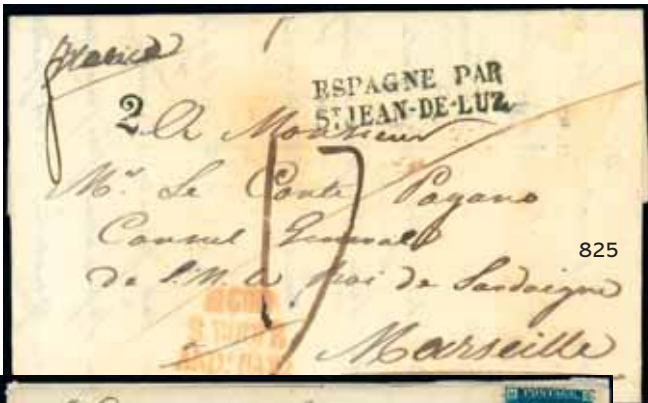 ESPAGNE PAR
ST JEAN-DE-LUZ
2 A Monsieur
Mr Le Conte Pagano
Consul General
825
de S.M. le Roi de Sardaigne
17
Marseille